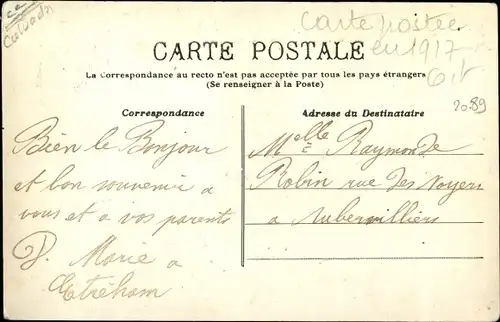 Calvados
Carte postée
en 1917
CARTE POSTALE
La Correspondance au recto n'est pas acceptée par tous les pays étrangers
(Se renseigner à la Poste)
2089
Correspondance
Bien le Bonjour
et bon souvenir a
vous et a vos parents
D. Marie a
Etréham
Adresse du Destinataire
Melle Raymonde
Robin rue des Noyers
a Aubervilliers